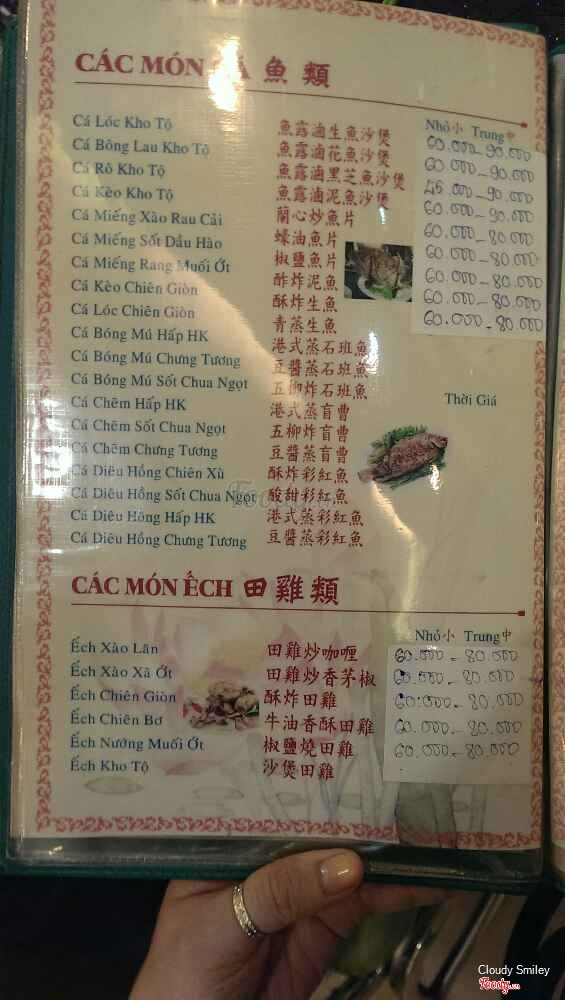 CÁC MÓN CÁ 魚類
Nhỏ小 Trung中
Cá Lóc Kho Tộ 魚露滷生魚沙煲 60.000-90.000
Cá Bông Lau Kho Tộ 魚露滷花魚沙煲 60.000-90.000
Cá Rô Kho Tộ 魚露滷黑芝魚沙煲 45.000-90.000
Cá Kèo Kho Tộ 魚露滷泥魚沙煲 60.000-90.000
Cá Miếng Xào Rau Cải 蘭心炒魚片 60.000-80.000
Cá Miếng Sốt Dầu Hào 蠔油魚片 60.000-80.000
Cá Miếng Rang Muối Ớt 椒鹽魚片 60.000-80.000
Cá Kèo Chiên Giòn 酥炸泥魚 60.000-80.000
Cá Lóc Chiên Giòn 酥炸生魚 60.000-80.000
青蒸生魚
Cá Bóng Mú Hấp HK 港式蒸石班魚
Cá Bóng Mú Chưng Tương 豆醬蒸石班魚
Cá Bóng Mú Sốt Chua Ngọt 五柳炸石班魚
Thời Giá
Cá Chẽm Hấp HK 港式蒸盲曹
Cá Chẽm Sốt Chua Ngọt 五柳炸盲曹
Cá Chẽm Chưng Tương 豆醬蒸盲曹
Cá Diêu Hồng Chiên Xù 酥炸彩紅魚
Cá Diêu Hồng Sốt Chua Ngọt 酸甜彩紅魚
Cá Diêu Hồng Hấp HK 港式蒸彩紅魚
Cá Diêu Hồng Chưng Tương 豆醬蒸彩紅魚
CÁC MÓN ẾCH 田雞類
Nhỏ小 Trung中
Ếch Xào Lăn 田雞炒咖喱 60.000-80.000
Ếch Xào Xã Ớt 田雞炒香茅椒 60.000-80.000
Ếch Chiên Giòn 酥炸田雞 60.000-80.000
Ếch Chiên Bơ 牛油香酥田雞 60.000-80.000
Ếch Nướng Muối Ớt 椒鹽燒田雞 60.000-80.000
Ếch Kho Tộ 沙煲田雞
Cloudy Smiley
Foody.vn